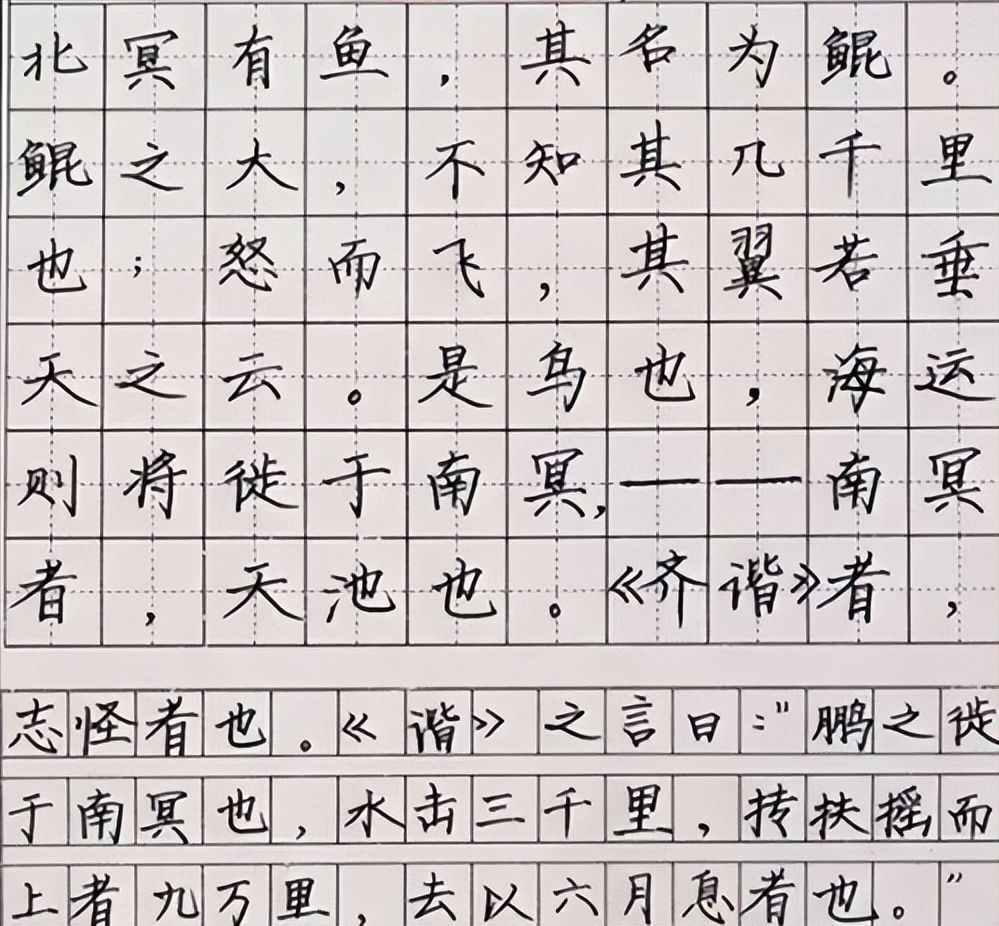 北冥有鱼，其名为鲲。
鲲之大，不知其几千里
也；怒而飞，其翼若垂
天之云。是鸟也，海运
则将徙于南冥，——南冥
者，天池也。《齐谐》者，
志怪者也。《谐》之言曰：“鹏之徙
于南冥也，水击三千里，抟扶摇而
上者九万里，去以六月息者也。”